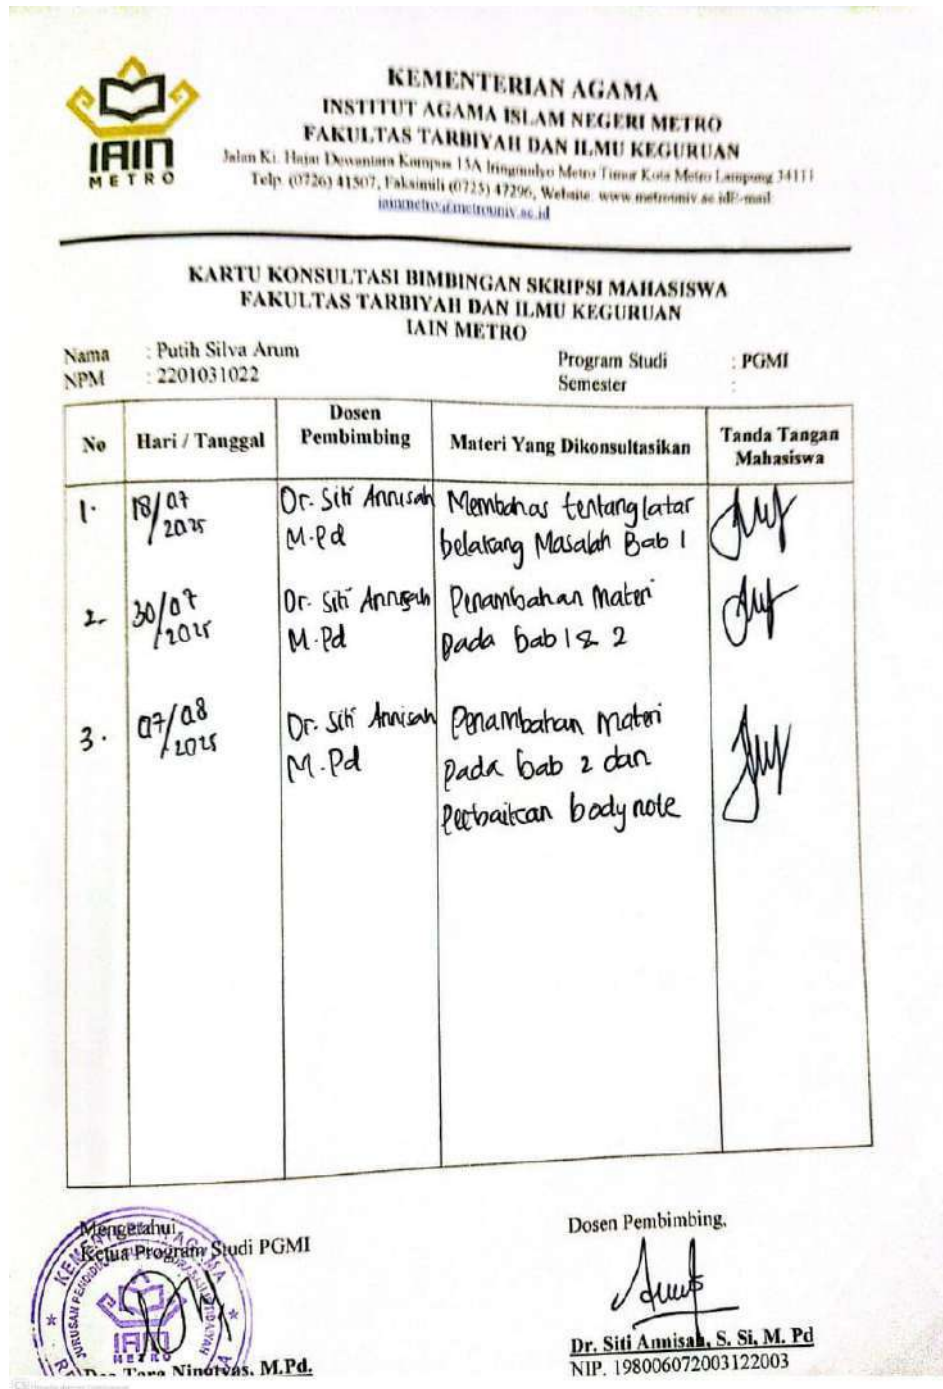 IAIN
METRO
KEMENTERIAN AGAMA
INSTITUT AGAMA ISLAM NEGERI METRO
FAKULTAS TARBIYAH DAN ILMU KEGURUAN
Jalan Ki. Hajar Dewantara Kampus 15A Iringmulyo Metro Timur Kota Metro Lampung 34111
Telp. (0726) 41507, Faksimili (0725) 47296, Website: www.metrouniv.ac.idE-mail:
iainmetro@metrouniv.ac.id
KARTU KONSULTASI BIMBINGAN SKRIPSI MAHASISWA
FAKULTAS TARBIYAH DAN ILMU KEGURUAN
IAIN METRO
Nama : Putih Silva Arum
NPM : 2201031022
Program Studi : PGMI
Semester :
No Hari / Tanggal Dosen Pembimbing Materi Yang Dikonsultasikan Tanda Tangan Mahasiswa
1. 18/07 Dr. Siti Annisah Membahas tentang latar
2025 M.Pd belakang Masalah Bab 1
2. 30/07 Dr. Siti Annisah Penambahan Materi
2025 M.Pd pada bab 1 & 2
3. 07/08 Dr. Siti Annisah Penambahan Materi
2025 M.Pd pada bab 2 dan
Perbaikan body note
Mengetahui
Ketua Program Studi PGMI
KEMENTERIAN AGAMA
IAIN
METRO
Ningtyas, M.Pd.
Dosen Pembimbing,
Dr. Siti Annisah, S. Si, M. Pd
NIP. 198006072003122003